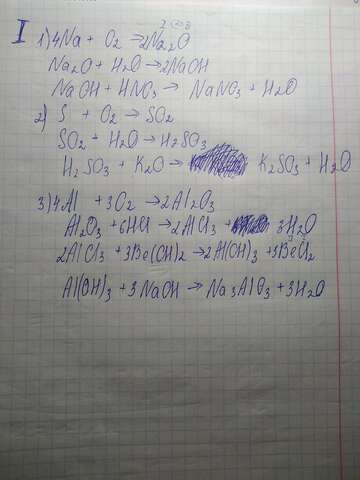 I
1) 4Na + O₂ → 2Na₂O
Na₂O + H₂O → 2NaOH
NaOH + HNO₃ → NaNO₃ + H₂O
2) S + O₂ → SO₂
SO₂ + H₂O → H₂SO₃
H₂SO₃ + K₂O → K₂SO₃ + H₂O
3) 4Al + 3O₂ → 2Al₂O₃
Al₂O₃ + 6HCl → 2AlCl₃ + 3H₂O
2AlCl₃ + 3Be(OH)₂ → 2Al(OH)₃ + 3BeCl₂
Al(OH)₃ + 3NaOH → Na₃AlO₃ + 3H₂O